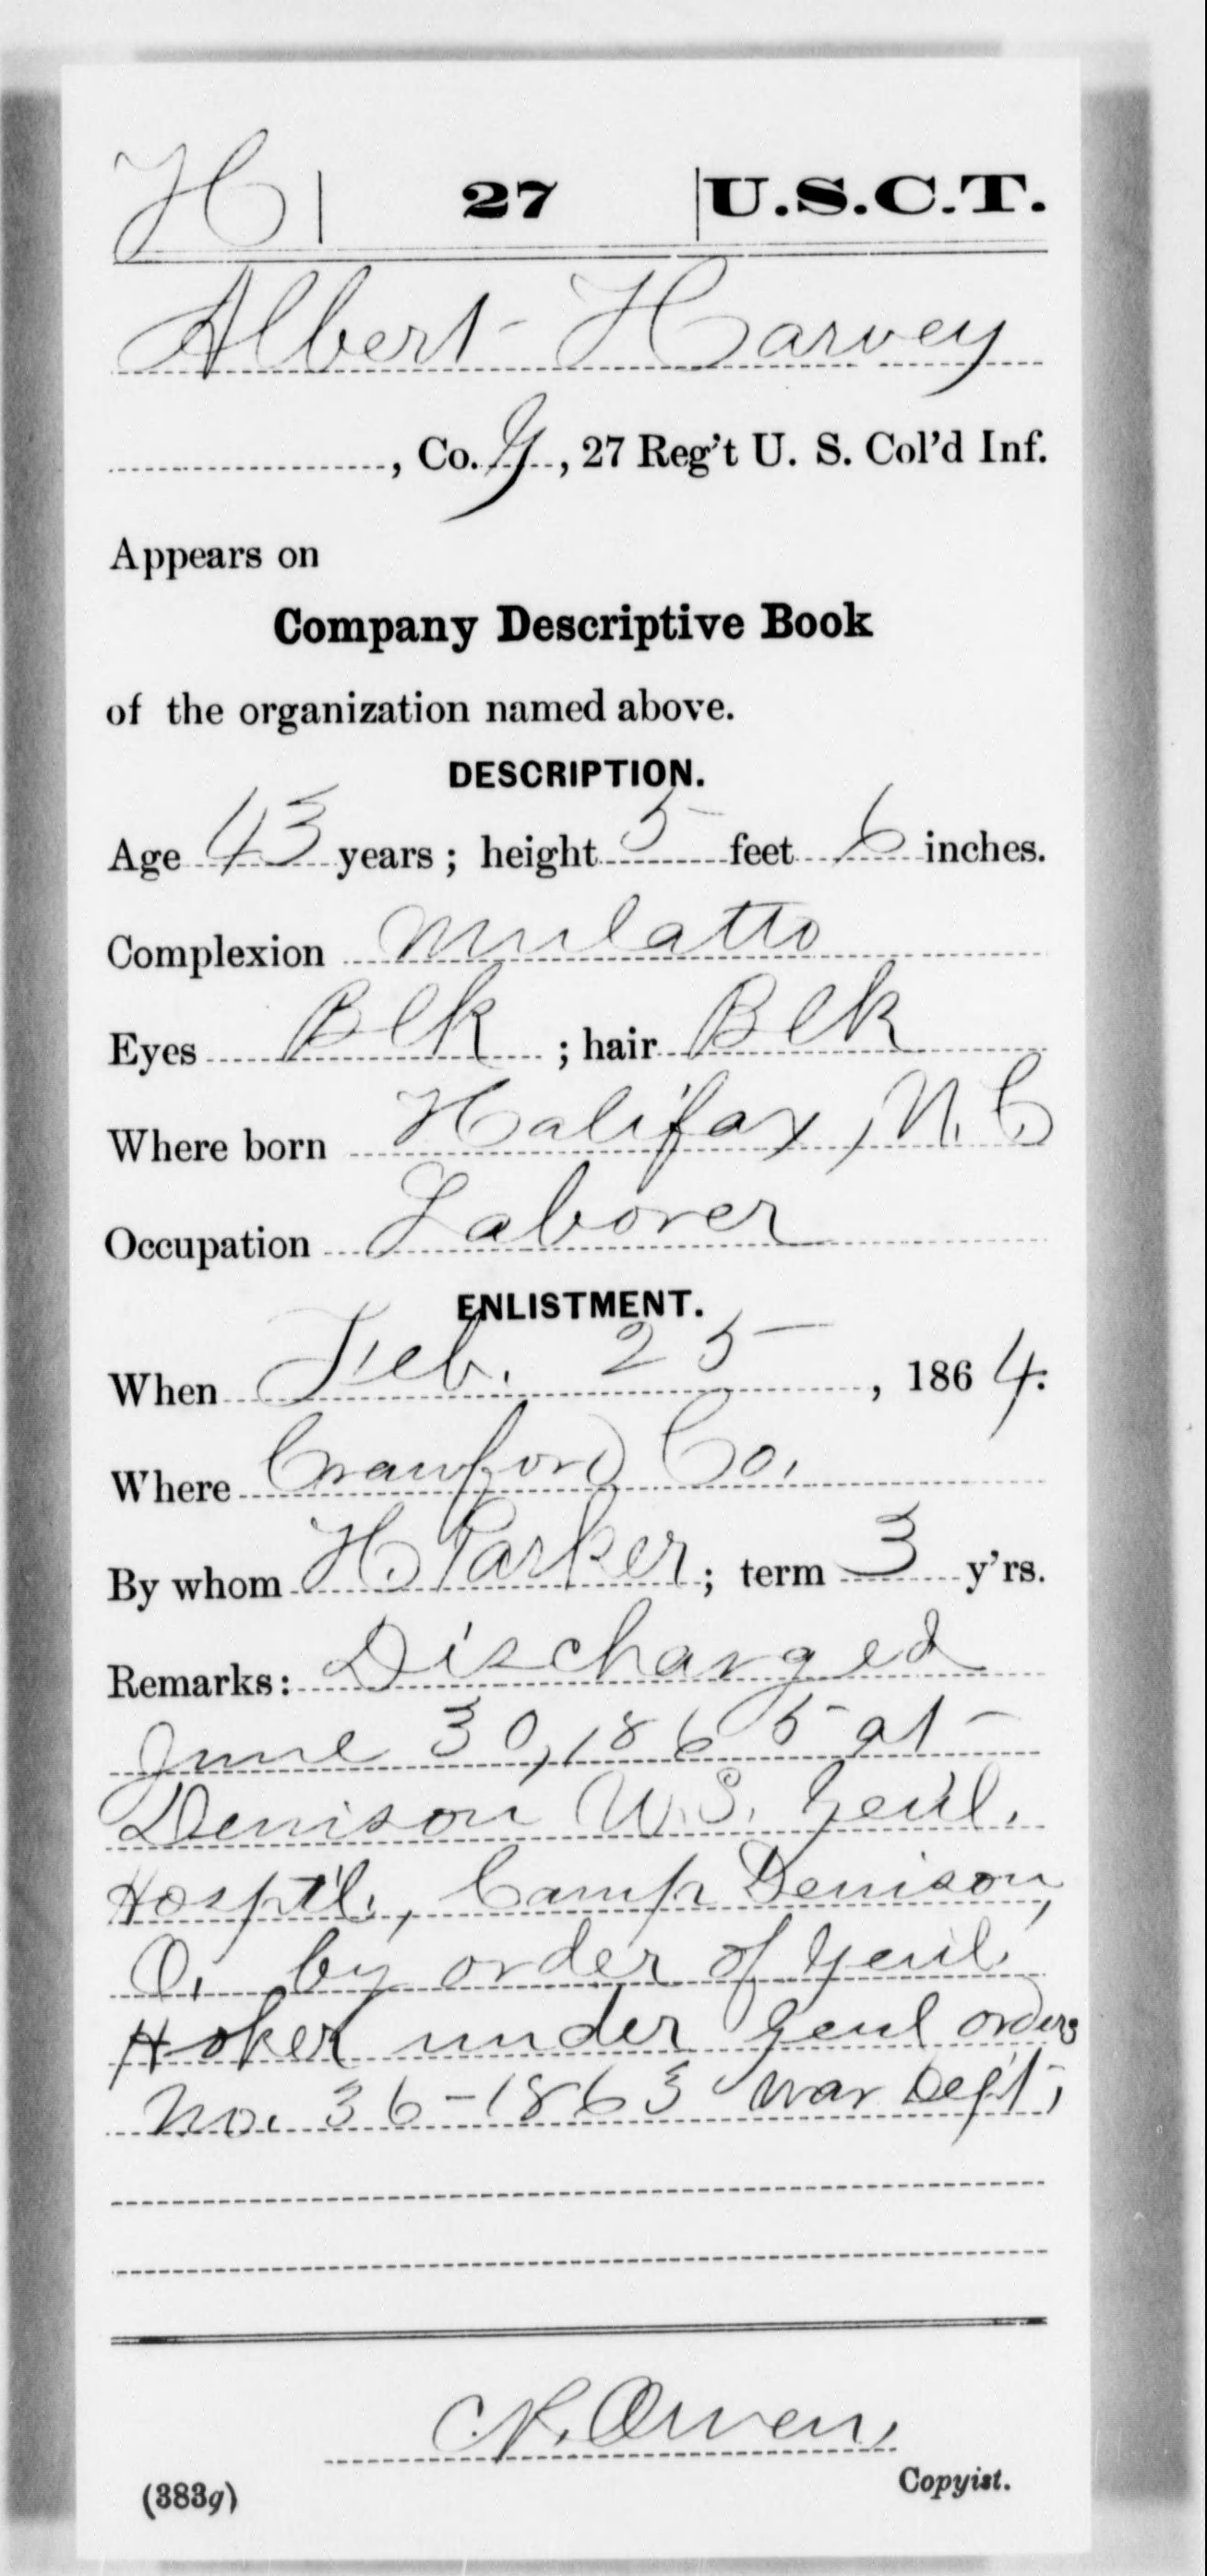 H | 27 | U.S.C.T.
Albert Harvey
, Co. G, 27 Reg't U. S. Col'd Inf.
Appears on
Company Descriptive Book
of the organization named above.
DESCRIPTION.
Age 43 years; height 5 feet 6 inches.
Complexion Mulatto
Eyes Blk; hair Blk
Where born Halifax, N.C.
Occupation Laborer
ENLISTMENT.
When Feb. 25, 1864.
Where Crawford Co.
By whom H. Parker; term 3 y'rs.
Remarks: Discharged
June 30, 1865 at
Denison U.S. Genl.
Hosptl., Camp Denison,
O. by order of Genl.
Hoker under Genl orders
No. 36-1863 War Dept,
Owen,
Copyist.
(383g)